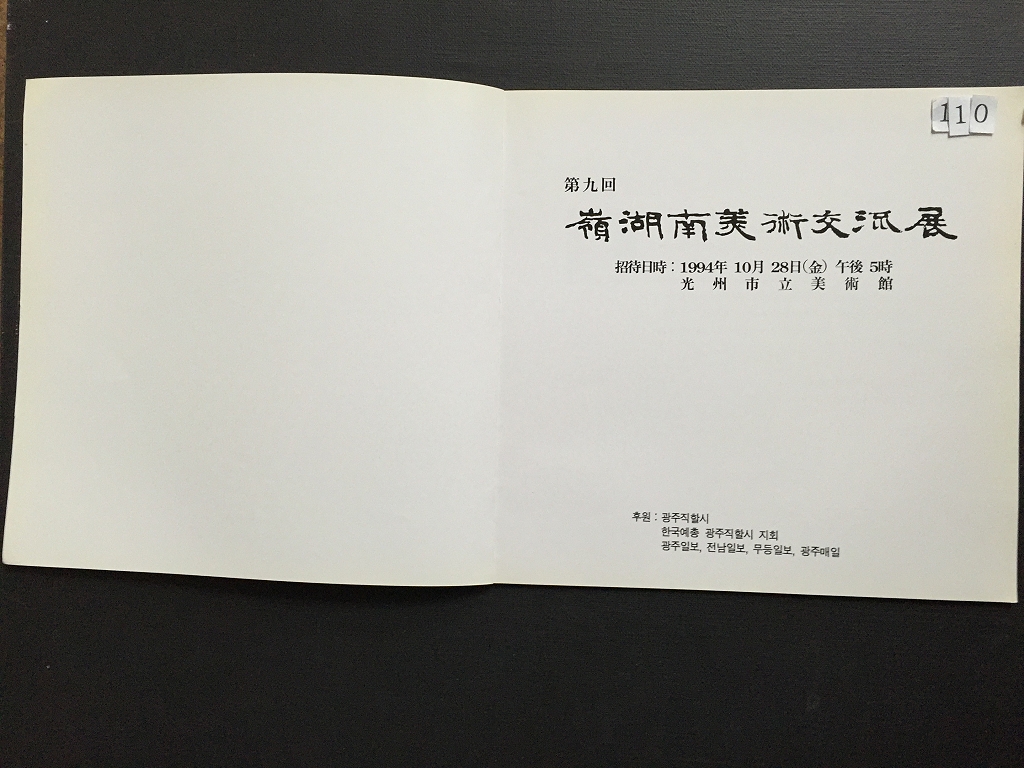 110
第九回
嶺湖南美術交流展
招待日時 : 1994年 10月 28日(金) 午後 5時
光州市立美術館
후원 : 광주직할시
한국예총 광주직할시 지회
광주일보, 전남일보, 무등일보, 광주매일